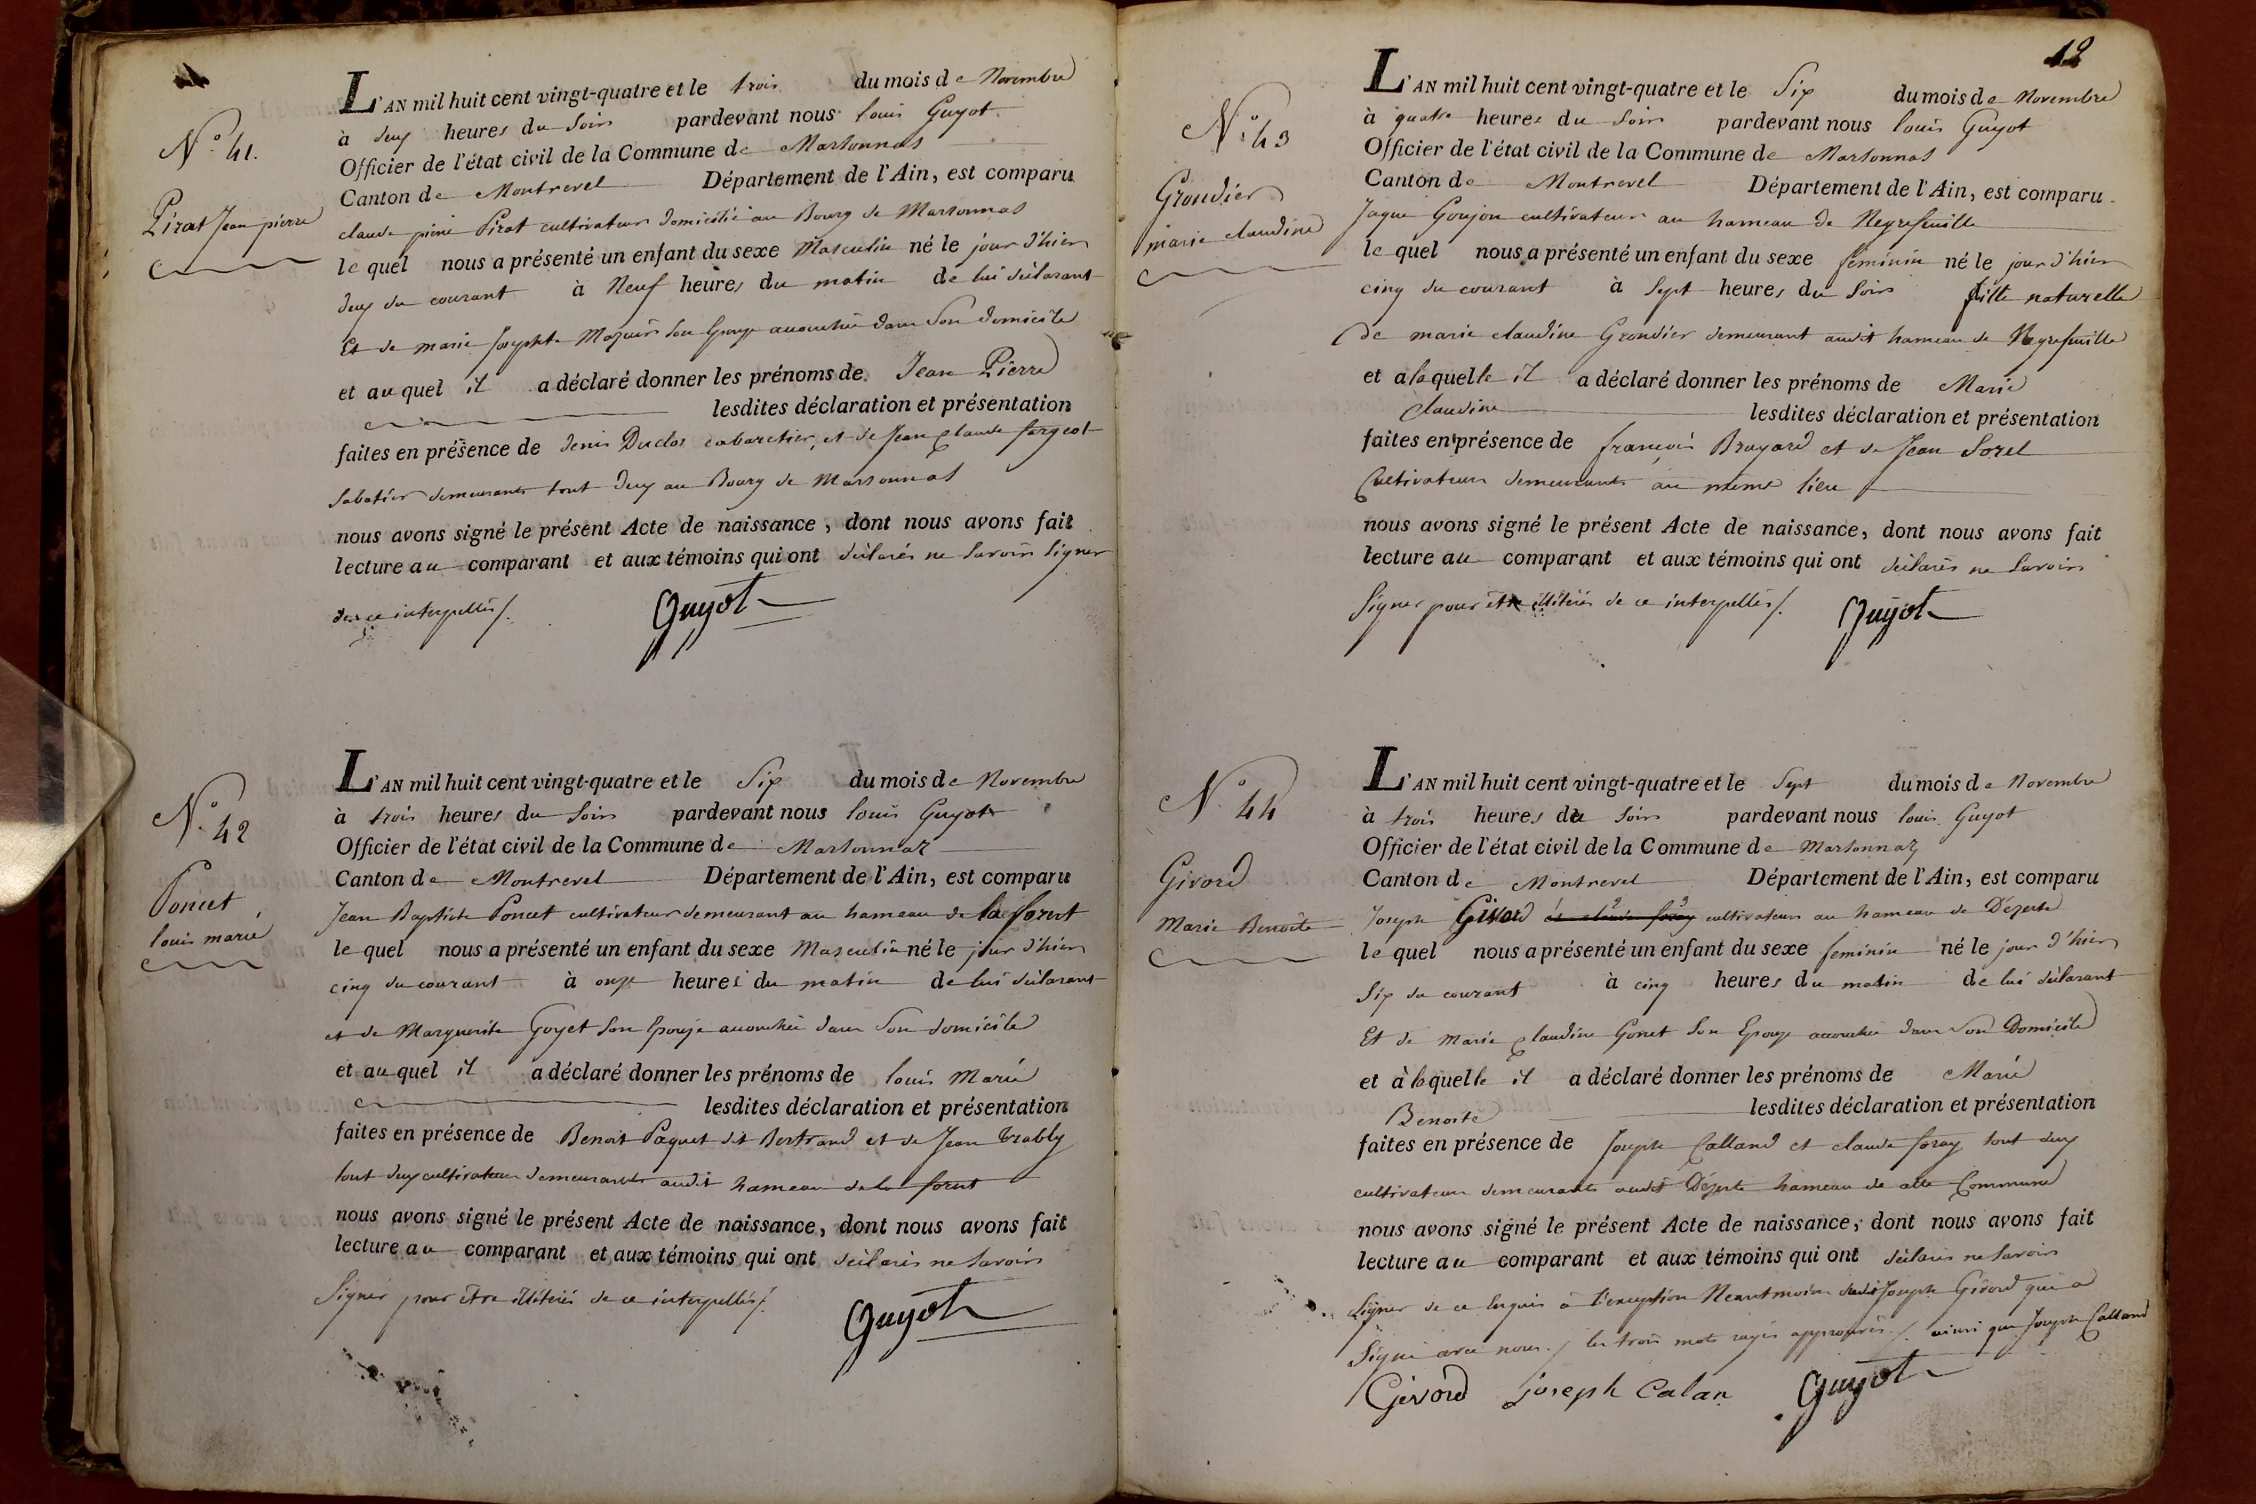 N.° 41.
Pirat Jean pierre
L'AN mil huit cent vingt-quatre et le trois du mois de Novembre
à deux heures du Soir pardevant nous louis Guyot
Officier de l'état civil de la Commune de Marsonnas
Canton de Montrevel Département de l'Ain, est comparu
claude pierre Pirat cultivateur domicilié au Bourg de Marsonnas
le quel nous a présenté un enfant du sexe Masculin né le jour d'hier
deux du courant à Neuf heures du matin de lui déclarant
Et de marie Josephte son Epouse accouchée dans Son domicile
et au quel il a déclaré donner les prénoms de Jean Pierre
lesdites déclaration et présentation
faites en présence de denis Duclos cabaretier, et de Jean Claude fargeot
Sabotier demeurants tout deux au Bourg de Marsonnas
nous avons signé le présent Acte de naissance, dont nous avons fait
lecture au comparant et aux témoins qui ont déclarés ne Savoir Signer
de ce interpellés /.
Guyot
N.° 42
Poncet
louis marie
L'AN mil huit cent vingt-quatre et le Six du mois de Novembre
à trois heures du Soir pardevant nous louis Guyot
Officier de l'état civil de la Commune de Marsonnaz
Canton de Montrevel Département de l'Ain, est comparu
Jean Baptiste Poncet cultivateur demeurant au hameau de la forêt
le quel nous a présenté un enfant du sexe Masculin né le jour d'hier
cinq du courant à onze heures du matin de lui déclarant
et de Marguerite Goyet Son Epouse accouchée dans Son domicile
et au quel il a déclaré donner les prénoms de louis Marie
lesdites déclaration et présentation
faites en présence de Benoit Paquet dit Bertrand et de Jean Trably
tout deux cultivateurs demeurants audit hameau de la forêt
nous avons signé le présent Acte de naissance, dont nous avons fait
lecture au comparant et aux témoins qui ont déclarés ne Savoir
Signer pour être illitérés de ce interpellés /.
Guyot
12
N.° 43
Grondier
marie claudine
L'AN mil huit cent vingt-quatre et le Six du mois de Novembre
à quatre heures du Soir pardevant nous louis Guyot
Officier de l'état civil de la Commune de Marsonnas
Canton de Montrevel Département de l'Ain, est comparu
Jaque Goujon cultivateur au hameau de Neyrefeuille
le quel nous a présenté un enfant du sexe féminin né le jour d'hier
cinq du courant à Sept heures du Soir fille naturelle
de marie claudine Grondier demeurant audit hameau de Neyrefeuille
et a laquelle il a déclaré donner les prénoms de Marie
Claudine lesdites déclaration et présentation
faites en présence de françois Brayard et de Jean Sorel
Cultivateurs demeurants au même lieu
nous avons signé le présent Acte de naissance, dont nous avons fait
lecture au comparant et aux témoins qui ont déclarés ne Savoir
Signer pour être illitérés de ce interpellés /.
Guyot
N.° 44
Givord
Marie Benoite
L'AN mil huit cent vingt-quatre et le Sept du mois de Novembre
à trois heures du Soir pardevant nous louis Guyot
Officier de l'état civil de la Commune de Marsonnaz
Canton de Montrevel Département de l'Ain, est comparu
Joseph Givord et claude foray cultivateur au hameau de Dézerte
le quel nous a présenté un enfant du sexe feminin né le jour d'hier
Six du courant à cinq heures du matin de lui déclarant
Et de Marie Claudine Gonet Son Epouse accouchée dans Son Domicile
et à laquelle il a déclaré donner les prénoms de Marie
Benoite lesdites déclaration et présentation
faites en présence de Joseph Calland et claude foray tout deux
cultivateurs demeurants audit Dézerte hameau de cette Commune
nous avons signé le présent Acte de naissance, dont nous avons fait
lecture au comparant et aux témoins qui ont déclarés ne Savoir
Signer de ce Enquis à l'exception Neantmoins dudit Joseph Givord qui a
Signé avec nous. / les trois mots rayés approuvés /. ainsi que Joseph Calland
Givord joseph Calan Guyot